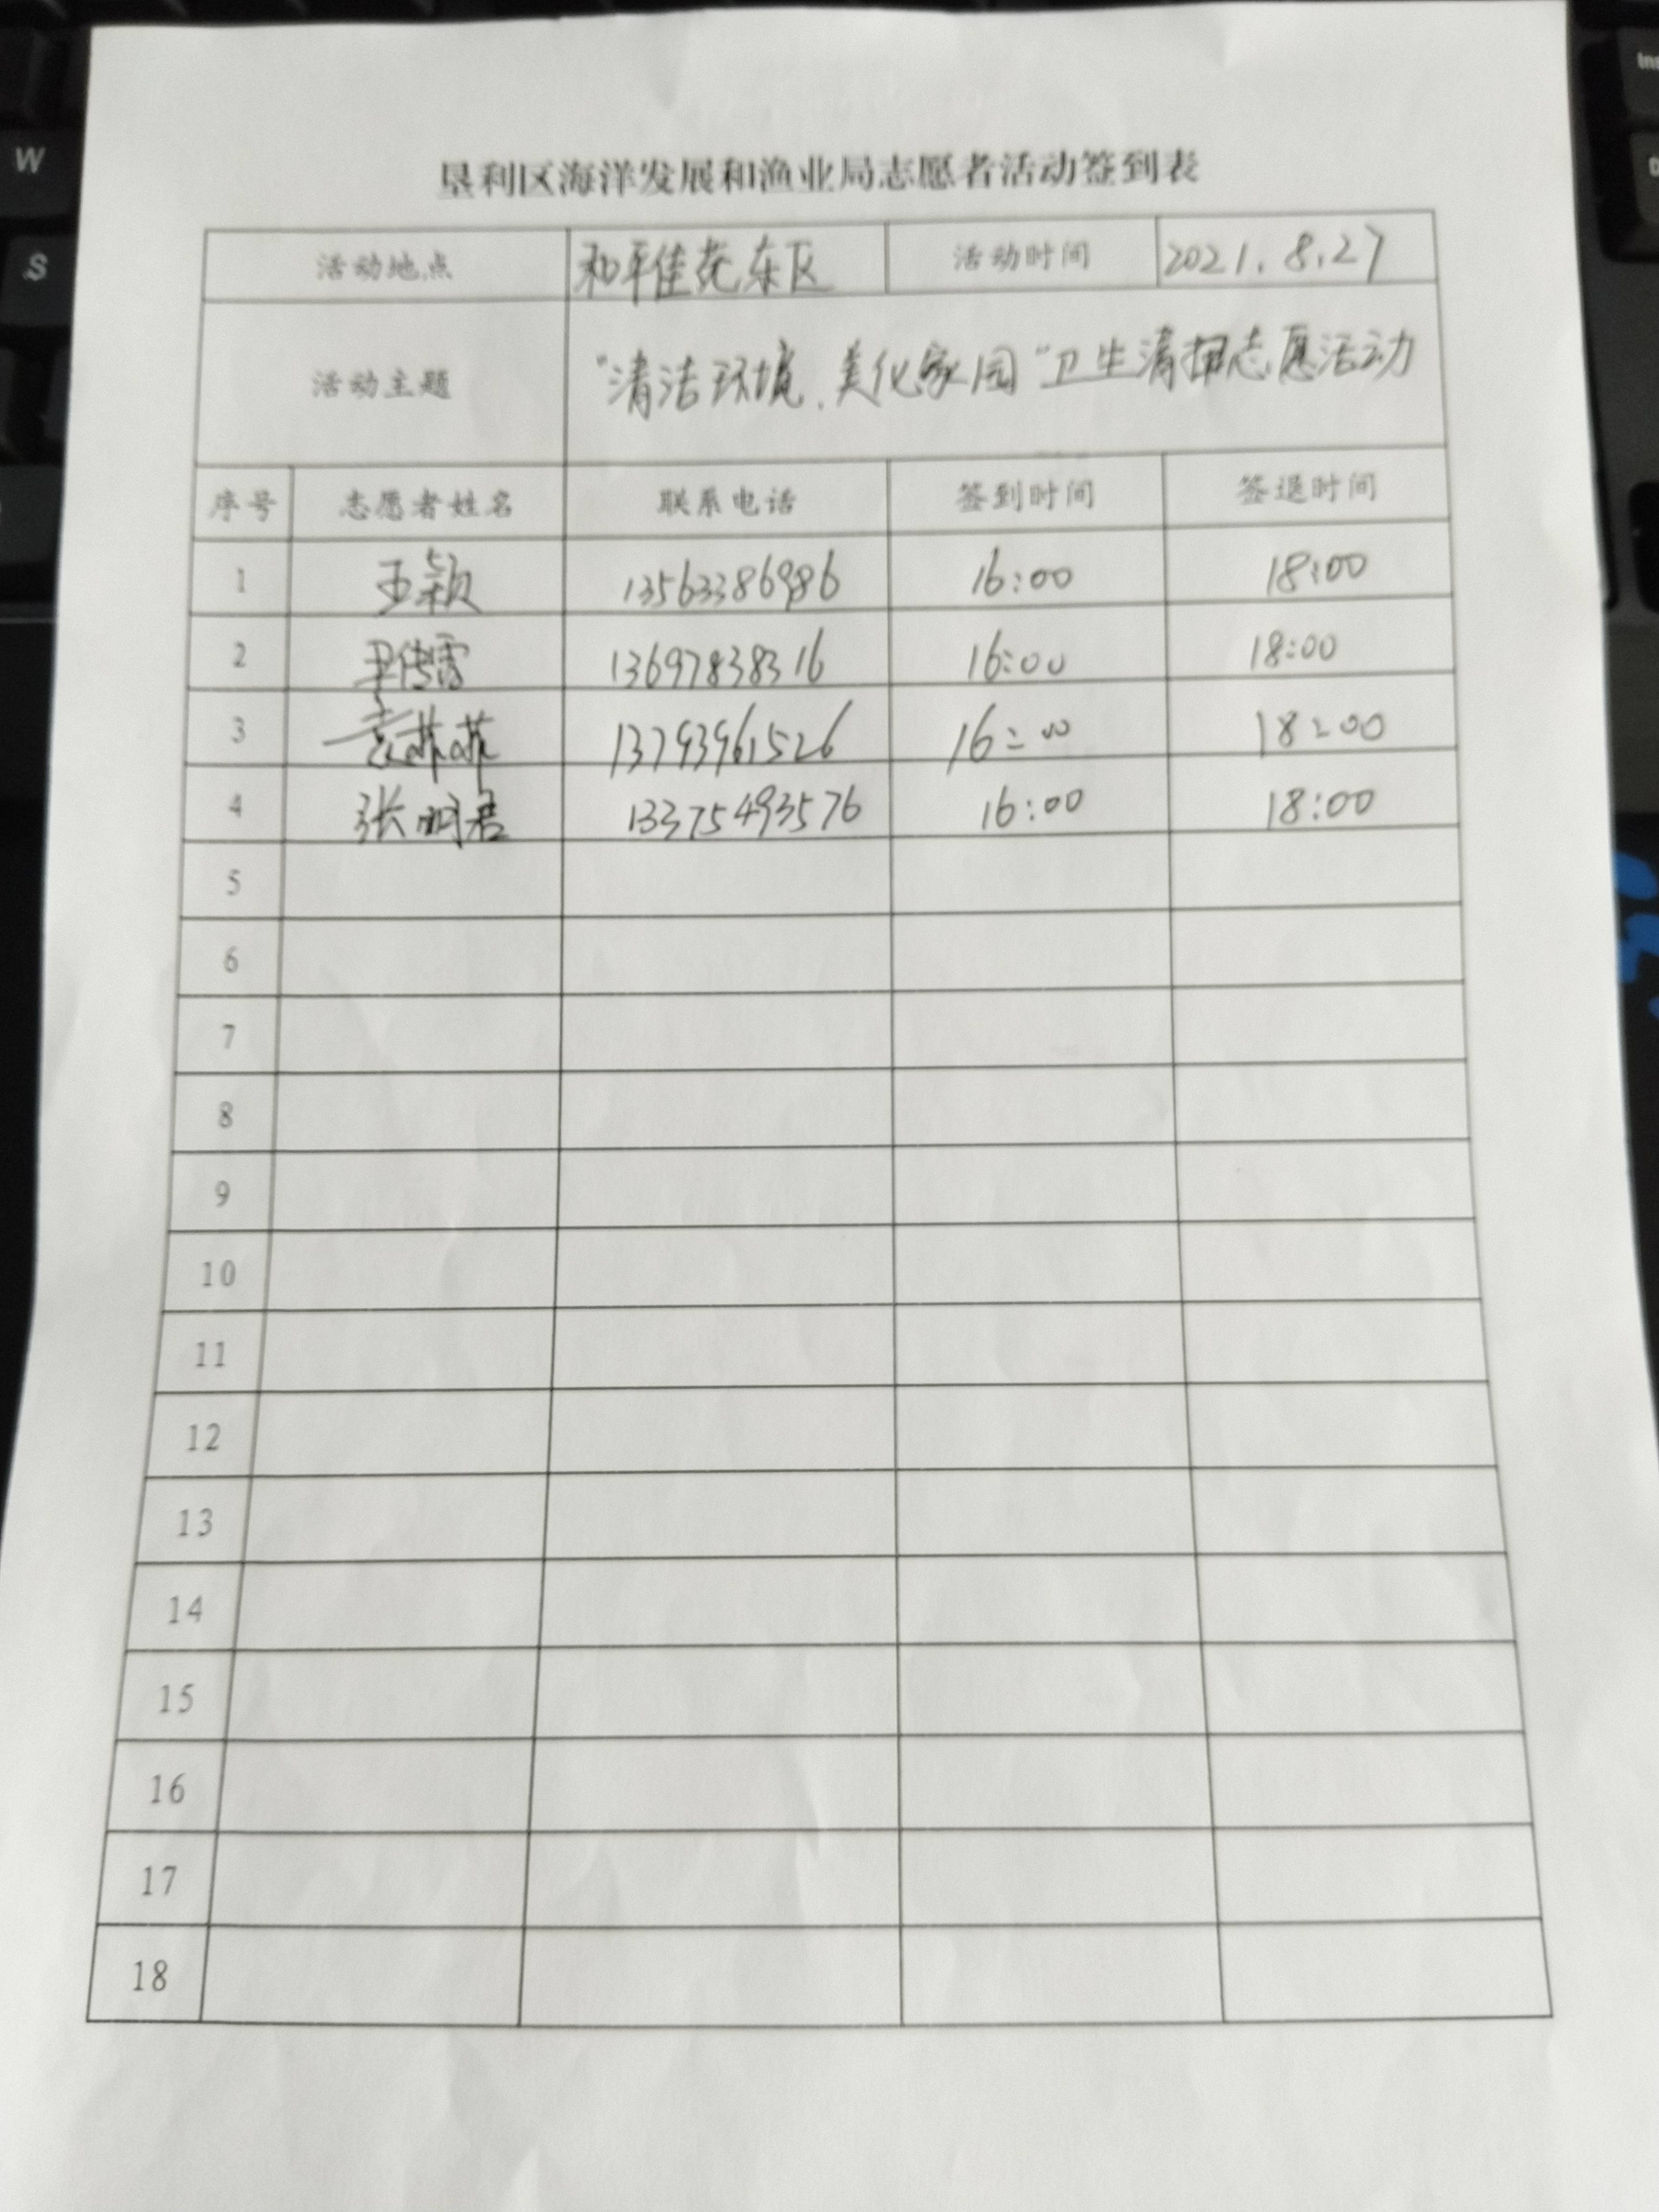 垦利区海洋发展和渔业局志愿者活动签到表
活动地点 和平佳苑东区 活动时间 2021.8.27
活动主题 "清洁环境、美化家园"卫生清扫志愿活动
序号 志愿者姓名 联系电话 签到时间 签退时间
1 王颖 13563386986 16:00 18:00
2 尹传雷 13697838316 16:00 18:00
3 袁菲菲 13793961526 16:00 18:00
4 张 13375493576 16:00 18:00
5
6
7
8
9
10
11
12
13
14
15
16
17
18
W
S
Ins